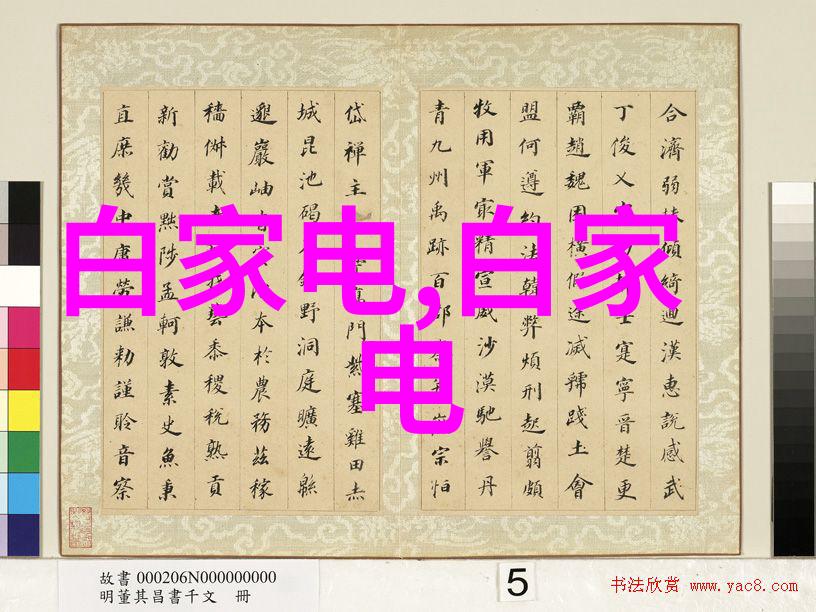 白家电,白家
电
合濟弱扶傾綺迴漢惠說感武
丁俊乂士寔寧晉楚更
霸趙魏困橫假途滅虢踐土會
盟何遵約法韓弊煩刑起翦頗
牧用軍最精宣威沙漠馳譽丹
青九州禹跡百郡宗恒
岱禪主門紫塞雞田赤
城昆池碣鉅野洞庭曠遠緜
邈巖岫本於農務茲稼
穡俶載我藝黍稷稅熟貢
新勸賞黜陟孟軻敦素史魚秉
直庶幾中庸勞謙勅謹聆音察
故書 000206N000000000
明董其昌書千文 冊
5
书法欣赏 www.yac8.com